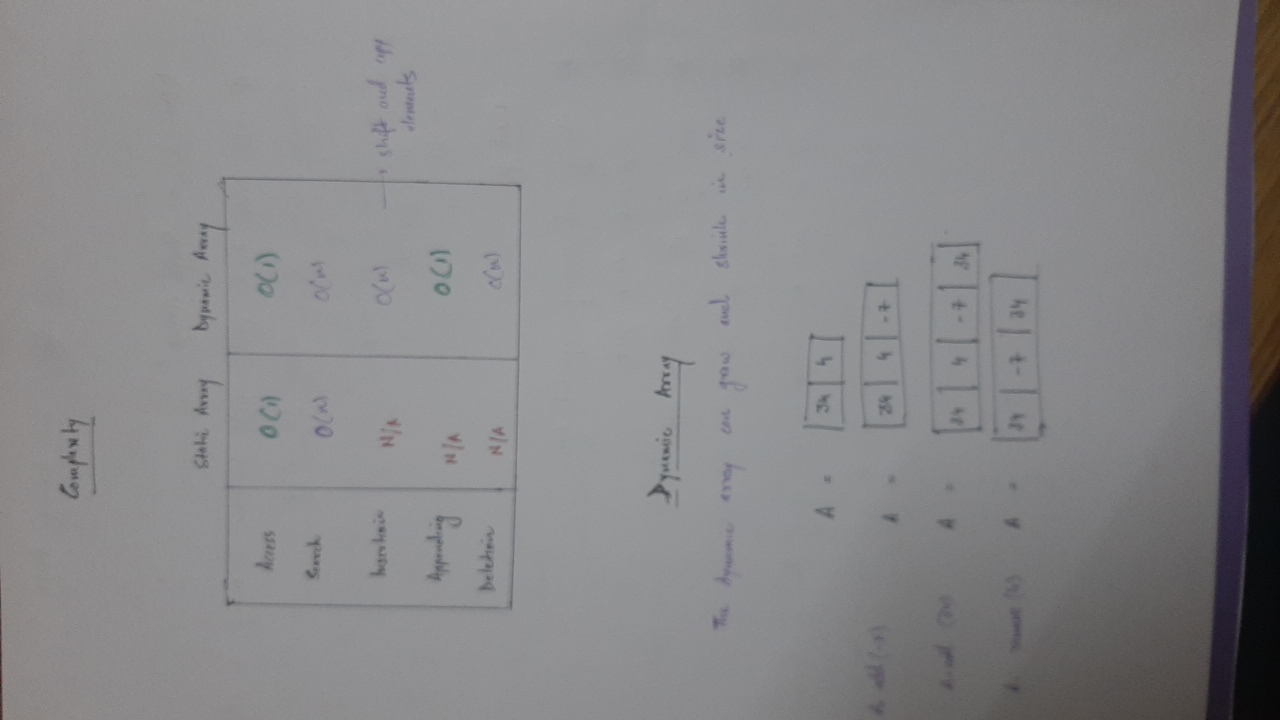 Complexity
Static Array Dynamic Array
Access O(1) O(1)
Search O(n) O(n)
Insertion N/A O(n) → shift and copy
elements
Appending N/A O(1)
Deletion N/A O(n)
Dynamic Array
The dynamic array can grow and shrink in size
A = 34 4
A. add (-7) A = 34 4 -7
A. add (34) A = 34 4 -7 34
A. remove (4) A = 34 -7 34